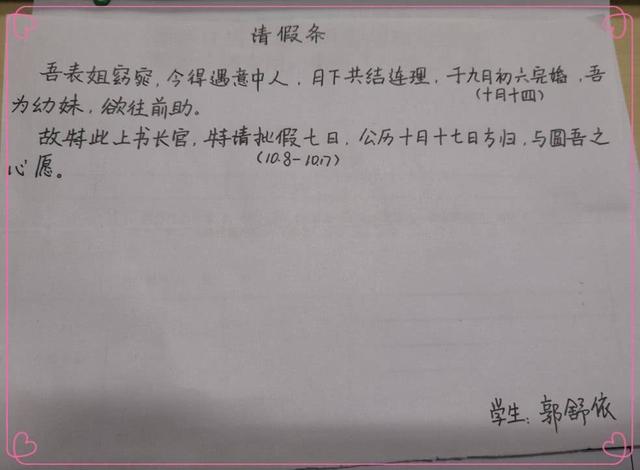 请假条
吾表姐窈窕,今得遇意中人,月下共结连理,于九月初六完婚,吾
(十月十四)
为幼妹,欲往前助。
故特此上书长官,特请批假七日,公历十月十七日方归,与圆吾之
(10.8-10.17)
心愿。
学生:郭舒依